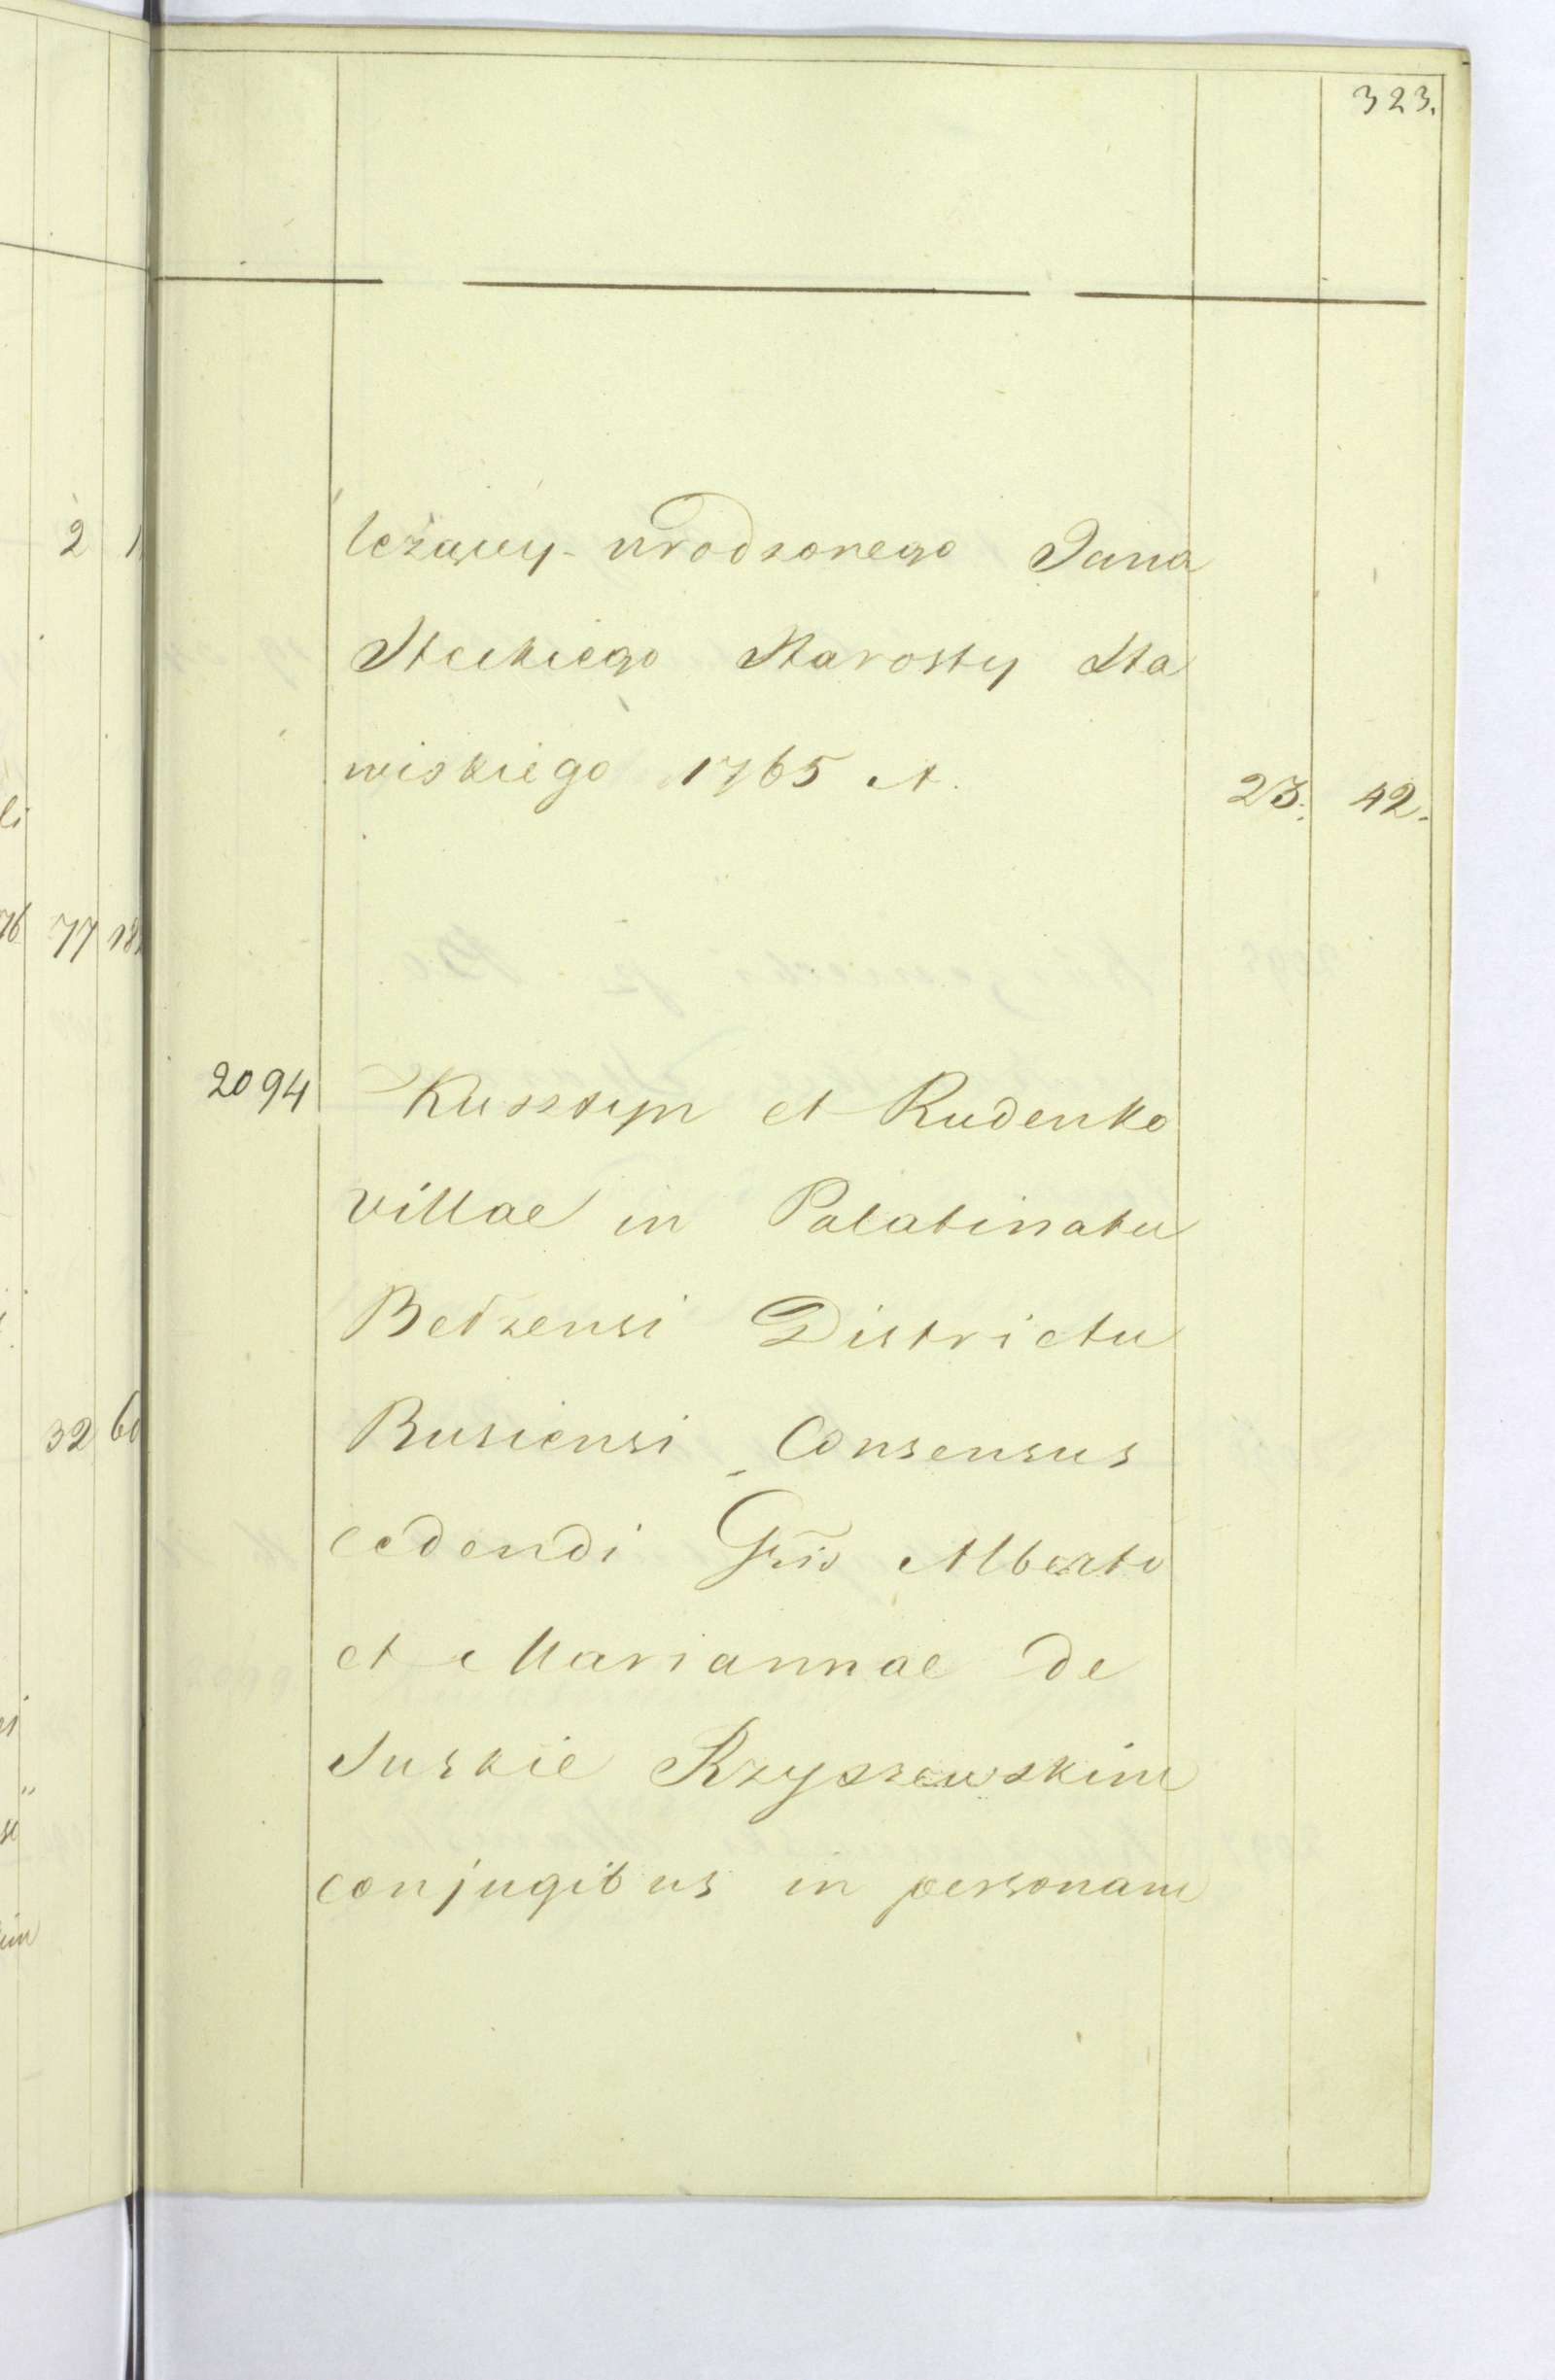 323.
leżący urodzonego Jana
Steckiego Starosty Sta
wiskiego 1765 A.
23. 42.
2094 Kusztyn et Rudenko
villae in Palatinatu
Betzensi Districtu
Busiensi Consensus
cedendi Gñso Alberto
et Mariannae de
Suskie Rzyszewskim
conjugibus in personam
2
77
32